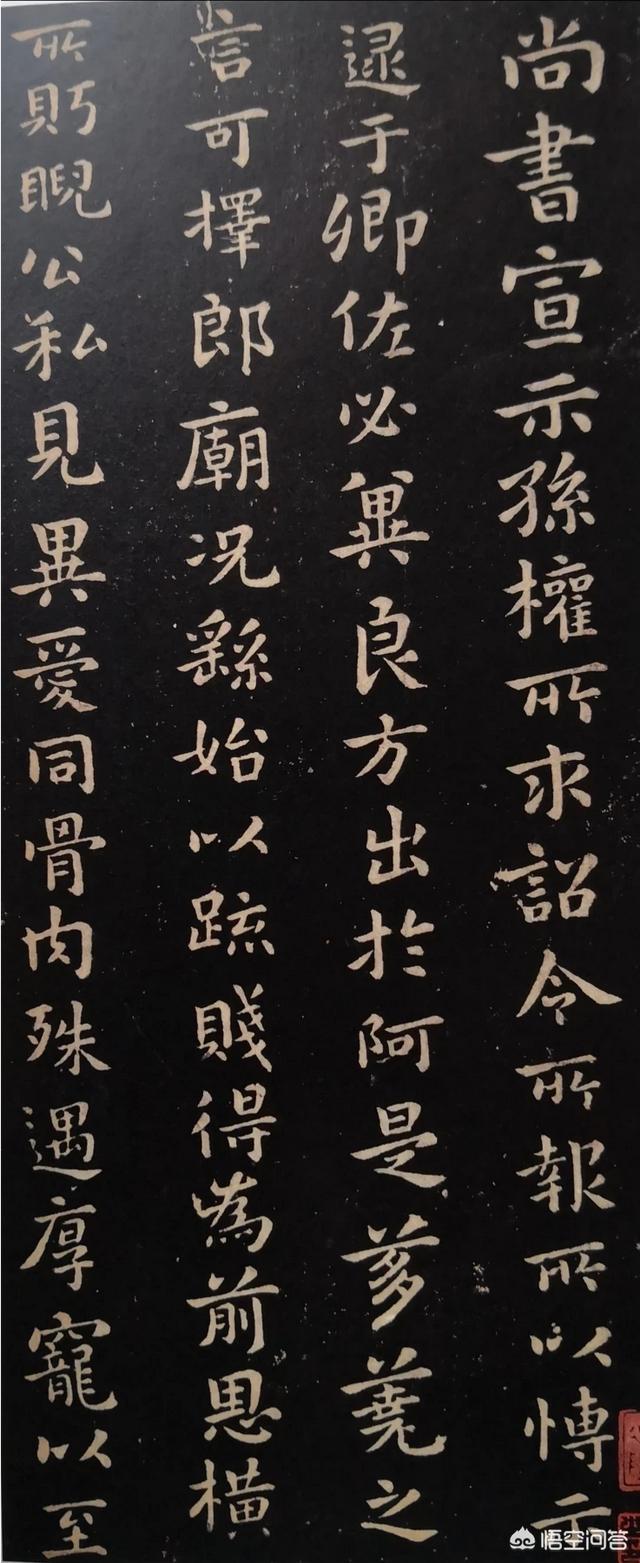 尚書宣示孫權所求詔令所報所以博示
逮于卿佐必冀良方出於阿是芻蕘之
言可擇郎廟況繇始以疏賤得為前恩橫
所𧵳睨公私見異愛同骨肉殊遇厚寵以至
悟空问答